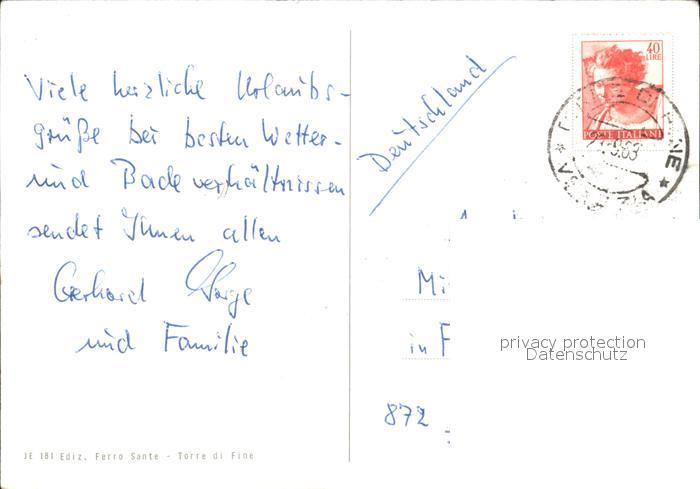 Viele herzliche Urlaubs-
grüße bei besten Wetter-
und Badeverhältnissen
sendet Ihnen allen
Gerhard
und Familie
JE 181 Ediz. Ferro Sante - Torre di Fine
Deutschland
40
LIRE
POSTE ITALIANE
Mi
in F
872
privacy protection
Datenschutz